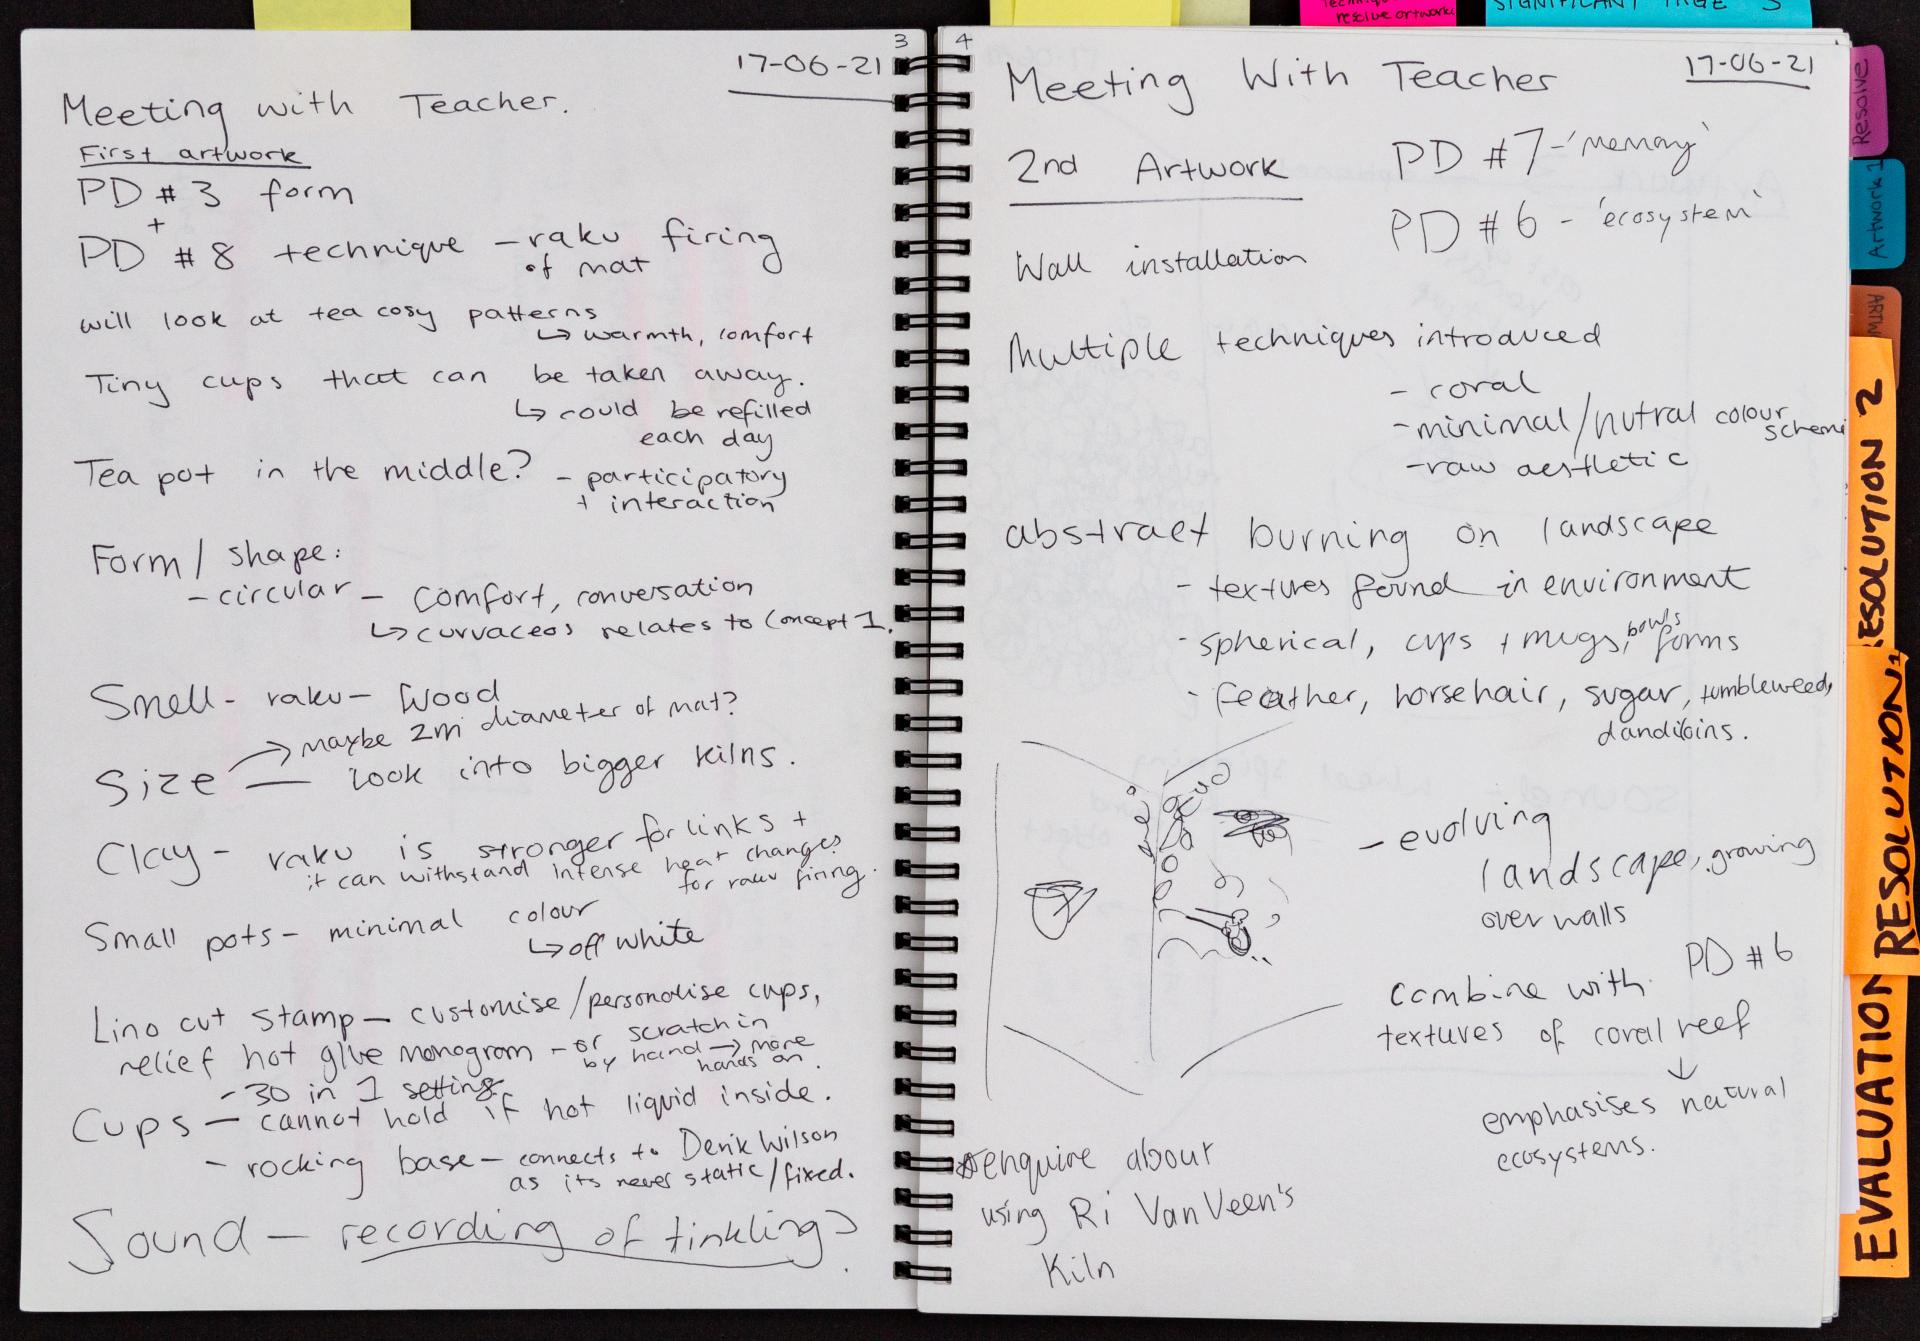 3
17-06-21
Meeting with Teacher.
First artwork
PD # 3 form
+
PD # 8 technique - raku firing
of mat
will look at tea cosy patterns
↳ warmth, comfort
Tiny cups that can be taken away.
↳ could be refilled
each day
Tea pot in the middle? - participatory
+ interaction
Form / shape:
- circular - comfort, conversation
↳ curvaceos relates to Concept 1.
Smell - raku - Wood
→ maybe 2m diameter of mat?
Size — look into bigger kilns.
Clay - raku is stronger for links +
it can withstand intense heat changes
for raku firing.
Small pots - minimal colour
↳ off white
Lino cut stamp - customise/personalise cups,
relief hot glue monogram - or scratch in
by hand → more
hands on.
- 30 in 1 setting
Cups - cannot hold if hot liquid inside.
- rocking base - connects to Derik Wilson
as its never static/fixed.
Sound - recording of tinkling
4
17-06-21
Meeting With Teacher
2nd Artwork
PD #7 - 'memory'
PD #6 - 'ecosystem'
Wall installation
Multiple techniques introduced
- coral
- minimal/nutral colour
scheme
- raw aesthetic
abstract burning on landscape
- textures found in environment
- spherical, cups + mugs, bowls forms
- feather, horsehair, sugar, tumbleweed,
- evolving
landscape, growing
over walls
combine with PD #6
textures of coral reef
↓
emphasises natural
ecosystems.
enquire about
using Ri Van Veen's
Kiln
resolve artwork
SIGNIFICANT PAGE 3
Resolve
Artwork 1
ARTW
RESOLUTION 2
RESOLUTION 1
EVALUATION